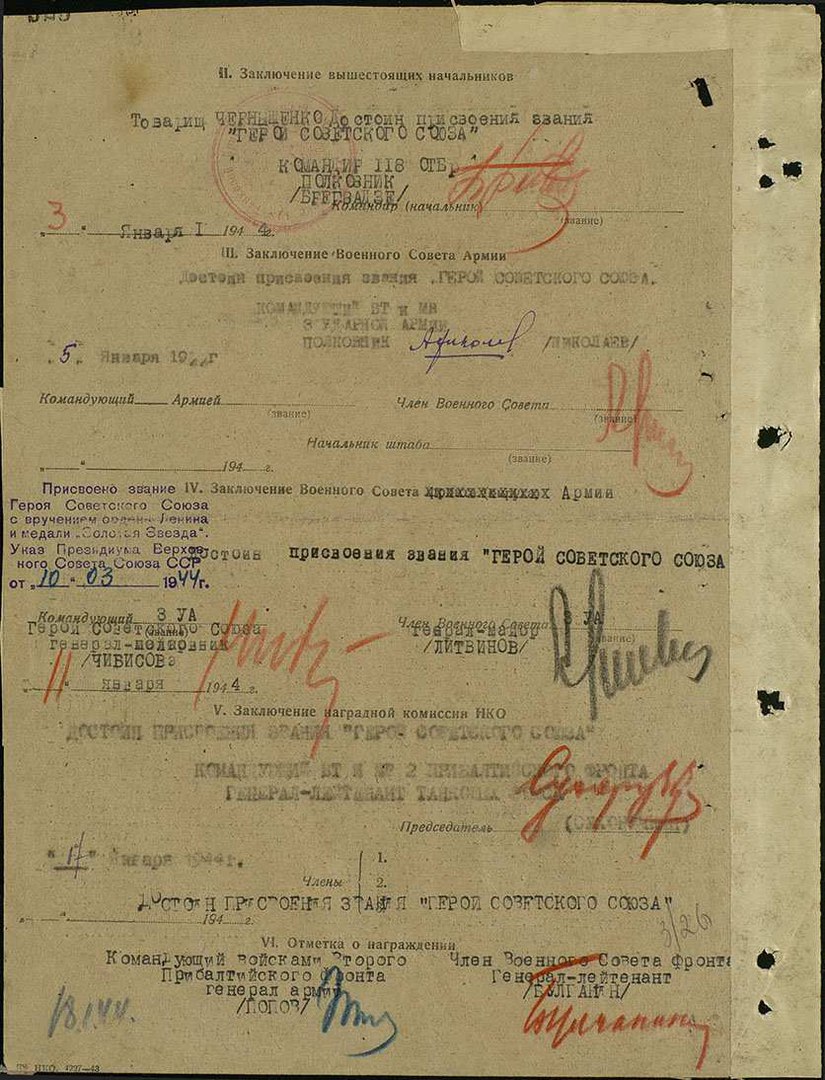 II. Заключение вышестоящих начальников
Товарищ ЧЕРНЫШЕНКО Достоин присвоения звания
"ГЕРОЙ СОВЕТСКОГО СОЮЗА"
КОМАНДИР 118 ОТБр
ПОЛКОВНИК
/БРЕГВАДЗЕ/
Командир (начальник)
(звание)
„3 " Января 1944 г.
III. Заключение Военного Совета Армии
Достоин присвоения звания „ГЕРОЙ СОВЕТСКОГО СОЮЗА.
КОМАНДУЮЩИЙ БТ и МВ
3 УДАРНОЙ АРМИИ
ПОЛКОВНИК /НИКОЛАЕВ/
„5" Января 1944г
Командующий Армией Член Военного Совета
(звание) (звание)
Начальник штаба
(звание)
„ " 194 г.
Присвоено звание
Героя Советского Союза
с вручением ордена Ленина
и медали „Золотая Звезда".
Указ Президиума Верхов-
ного Совета Союза ССР
от „10" 03 1944г.
IV. Заключение Военного Совета Армии
Достоин присвоения звания "ГЕРОЙ СОВЕТСКОГО СОЮЗА
Командующий 3 УА Член Военного Совета 3 УА
(звание) (звание)
Герой Советского Союза генерал-майор
генерал-полковник /ЛИТВИНОВ/
/ЧИБИСОВ
„11" января 1944 г.
V. Заключение наградной комиссии НКО
ДОСТОИН ПРИСВОЕНИЯ ЗВАНИЯ "ГЕРОЯ СОВЕТСКОГО СОЮЗА"
КОМАНДУЮЩИЙ БТ И МВ 2 ПРИБАЛТИЙСКОГО ФРОНТА
ГЕНЕРАЛ-ЛЕЙТЕНАНТ ТАНКОВЫХ
Председатель
"17" Января 1944г.
Члены 1.
2.
ДОСТОИН ПРИСВОЕНИЯ ЗВАНИЯ "ГЕРОЙ СОВЕТСКОГО СОЮЗА"
„ " 194 г.
3/26
VI. Отметка о награждении
Командующий войсками Второго Член Военного Совета фронта
Прибалтийского фронта Генерал-лейтенант
генерал армии /БУЛГАНИН/
/ПОПОВ/
18.1.44.